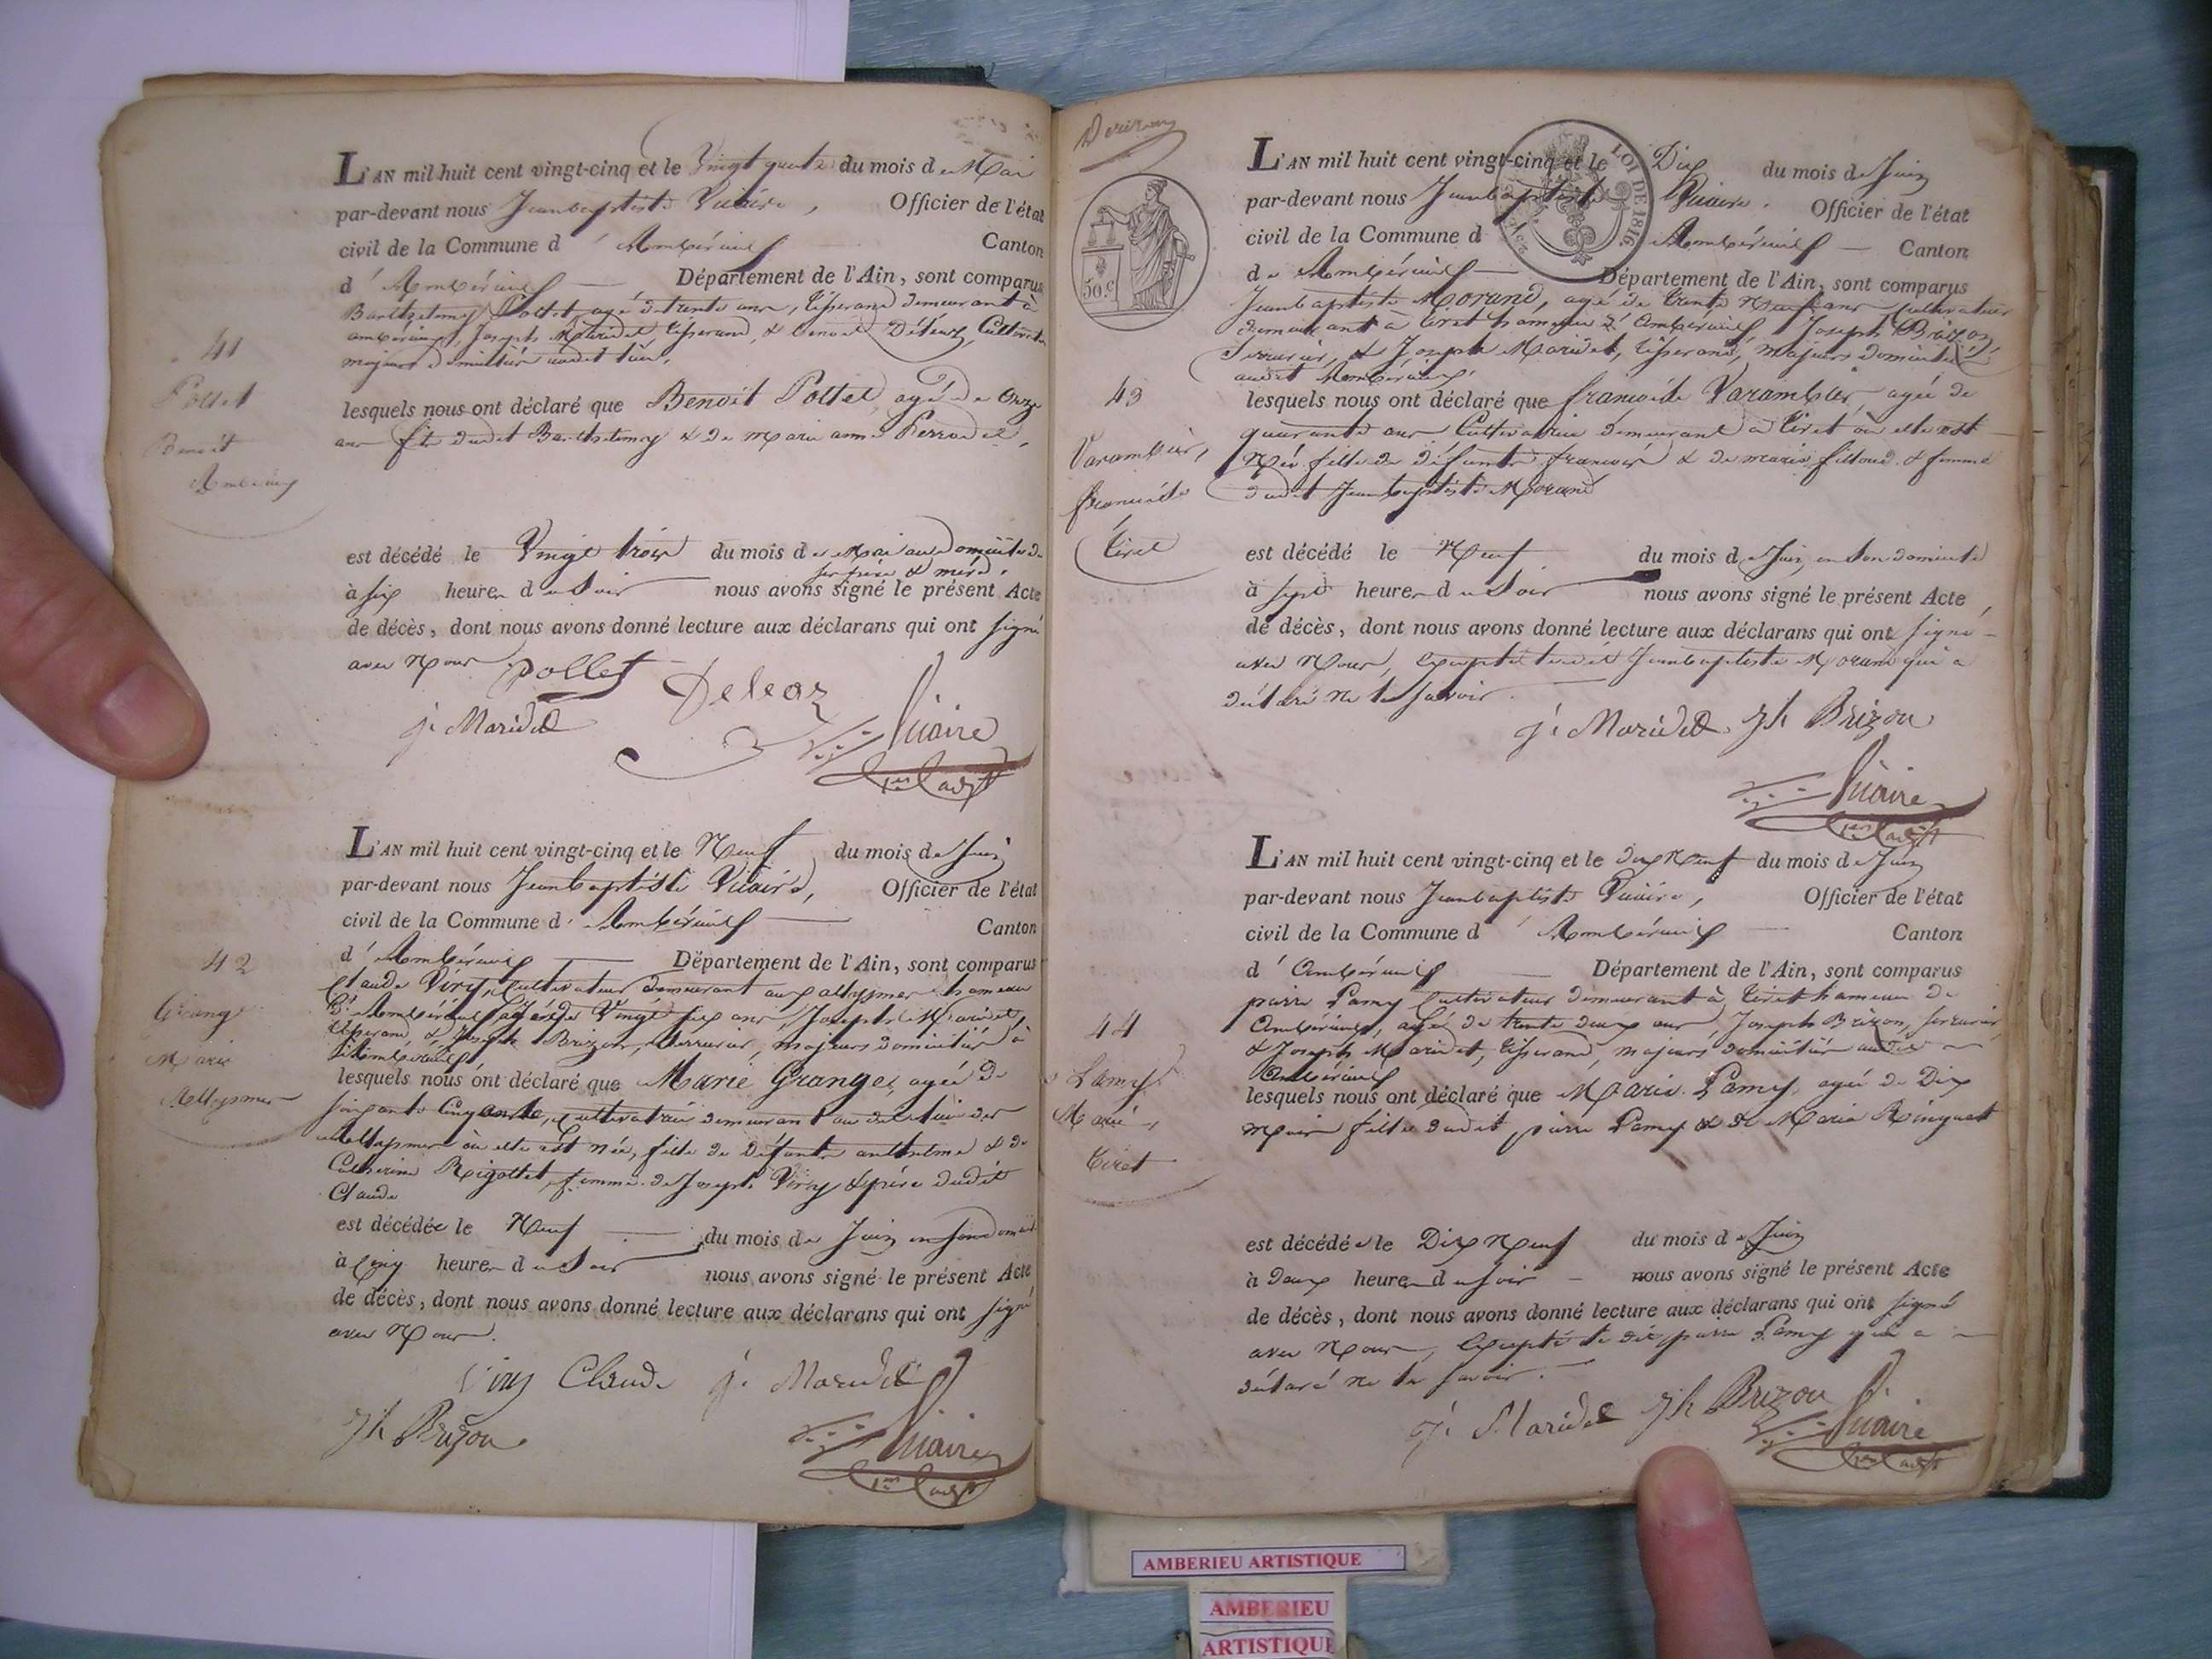 L'AN mil huit cent vingt-cinq et le Vingt quatre du mois de Mai
par-devant nous Jean baptiste Vicaire, Officier de l'état
civil de la Commune d' Ambérieux Canton
d' Ambérieux Département de l'Ain, sont comparus
Barthelemy Pollet, agé de trente ans, tisserand demeurant à
ambérieux, Joseph Maridet tisserand, & benoit Cultivateur
majeurs domiciliés audit lieu,
41
Pollet
Benoit
Ambérieux
lesquels nous ont déclaré que Benoit Pollet, agé de onze
ans fils dudit Barthelemy & de Marie anne Perrodet,
est décédé le Vingt trois du mois de Mai au Domicile de
ses père & mère,
à six heures du Soir nous avons signé le présent Acte
de décès, dont nous avons donné lecture aux déclarans qui ont signé
avec Nous
Pollet Deleaz
j. Maridet Vicaire
1er adjt
L'AN mil huit cent vingt-cinq et le Neuf du mois de Juin
par-devant nous Jean baptiste Vicaire, Officier de l'état
civil de la Commune d' Ambérieux Canton
d' Ambérieux Département de l'Ain, sont comparus
Claude Viry, Cultivateur demeurant aux allymes hameau
d'Ambérieux, agé de Vingt six ans, Joseph Maridet,
tisserand, & Joseph Brizon, serrurier, majeurs domiciliés à
Ambérieux
42
Grange
Marie
Allymes
lesquels nous ont déclaré que Marie Grange, agée de
soixante Cinq ans, Cultivatrice demeurant audit lieu des
allymes où elle est née, fille de défunts anthelme & de
Catherine Rigollet, femme de Joseph Viry & mère dudit
Claude
est décédée le Neuf du mois de Juin en son domicile
à Cinq heures du Soir nous avons signé le présent Acte
de décès, dont nous avons donné lecture aux déclarans qui ont signé
avec Nous.
Viry Claude j. Maridet
Jh Brizon Vicaire
1er adjt
L'AN mil huit cent vingt-cinq et le Dix du mois de Juin
par-devant nous Jean baptiste Vicaire, Officier de l'état
civil de la Commune d' Ambérieux Canton
de Ambérieux Département de l'Ain, sont comparus
LOI DE 1816
50.c
Jean baptiste Morand, agé de trente Neuf ans, Cultivateur
demeurant à tiret hameau d'Ambérieux, Joseph Brizon,
Serrurier, & Joseph Maridet, tisserand, majeurs domiciliés
audit Ambérieux,
43
Varambier,
françoise
tiret
lesquels nous ont déclaré que françoise Varambier agée de
quarante ans Cultivatrice demeurant à tiret où elle est
Née fille de défunts françois & de marie filloud & femme
dudit Jean baptiste Morand
est décédé le Neuf du mois de Juin, en Son domicile
à sept heures du Soir nous avons signé le présent Acte,
de décès, dont nous avons donné lecture aux déclarans qui ont signé
avec Nous, Excepté ledit Jean baptiste Morand qui a
déclaré ne le Savoir.
j. Maridet Jh Brizon
Vicaire
1er adjt
L'AN mil huit cent vingt-cinq et le dix Neuf du mois de Juin
par-devant nous Jean baptiste Vicaire, Officier de l'état
civil de la Commune d' Ambérieux Canton
d' Ambérieux Département de l'Ain, sont comparus
pierre Lamy Cultivateur demeurant à tiret hameau de
Ambérieux, agé de trente deux ans, Joseph Brizon, serrurier
& Joseph Maridet, tisserand, majeurs domiciliés audit
Ambérieux
44
Lamy
Marie
tiret
lesquels nous ont déclaré que Marie Lamy, agée de Dix
Mois fille dudit pierre Lamy & de Marie Ringuet
est décédée le Dix Neuf du mois de Juin
à Deux heures du Soir nous avons signé le présent Acte
de décès, dont nous avons donné lecture aux déclarans qui ont signé
avec Nous, Excepté le dit pierre Lamy qui a
déclaré ne le Savoir.
j. Maridet Jh Brizon Vicaire
1er adjt
AMBERIEU ARTISTIQUE
AMBERIEU
ARTISTIQUE